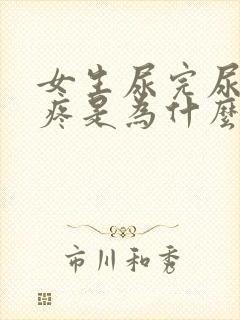 女生尿完尿
疼是為什麼
市川和秀